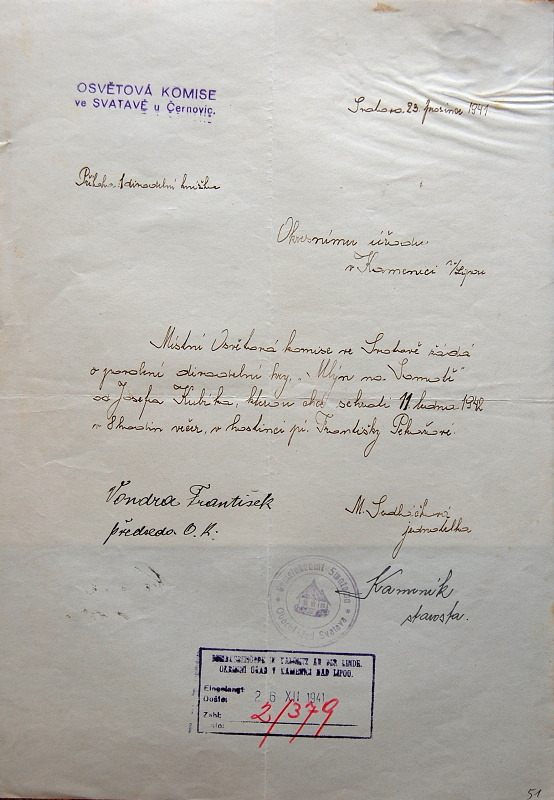 OSVĚTOVÁ KOMISE
ve SVATAVĚ u Černovic.
Svatava 23. prosince 1941
Příloha: 1 divadelní knížka
Okresnímu úřadu
v Kamenici n/Lipou
Místní Osvětová komise ve Svatavě žádá
o povolení divadelní hry, "Mlýn na Samotě"
od Josefa Kubíka, kterou chce sehrati 11 ledna 1942
v 8 hodin večer, v hostinci pí. Františky Pekařové.
Vondra František
předseda O. K.
M. Sedláčková
jednatelka
Obecní úřad Svatava
Kameník
starosta.
BEZIRKSBEHÖRDE IN KAMENITZ AN DER LINDE.
OKRESNÍ ÚŘAD V KAMENICI NAD LIPOU.
Eingelangt:
Došlo:
26 XII 1941
Zahl:
Číslo:
2/379
51